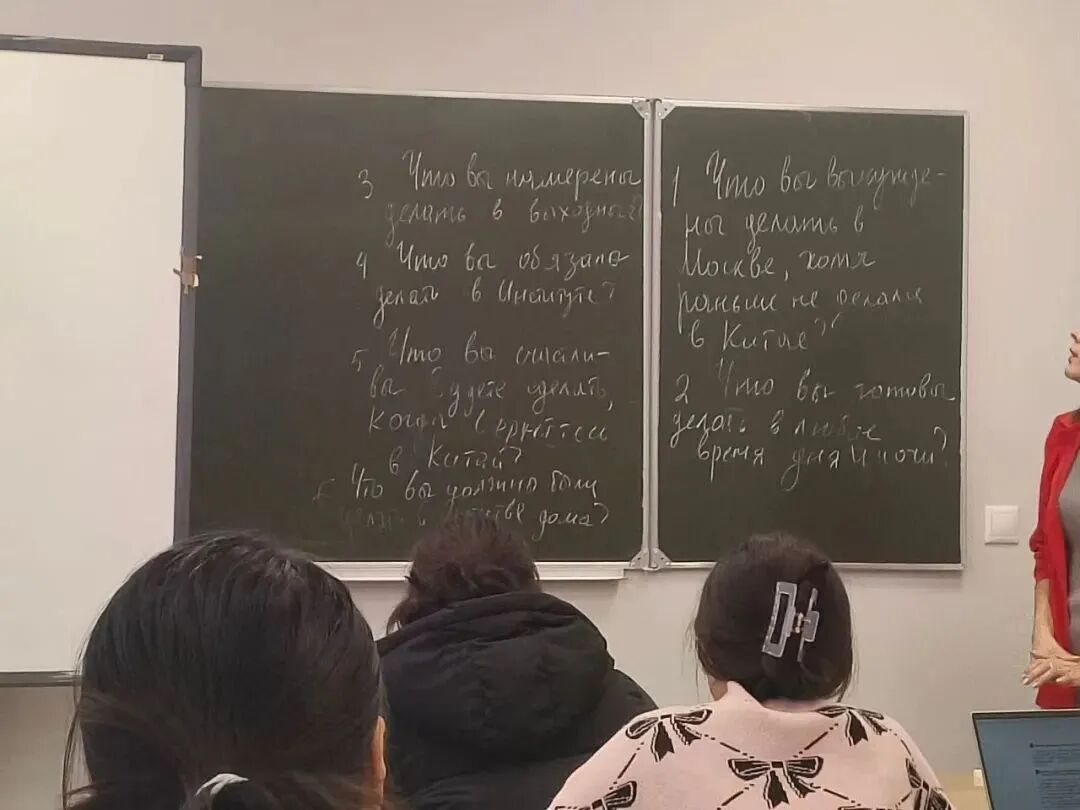 1 Что вы вынужде-
ны делать в
Москве, хотя
раньше не делали
в Китае?
2 Что вы готовы
делать в любое
время дня и ночи?
3 Что вы намерены
делать в выходные?
4 Что вы обязаны
делать в Институте?
5 Что вы счастли-
вы будете сделать,
когда вернётесь
в Китай?
6 Что вы должны были
делать в детстве дома?